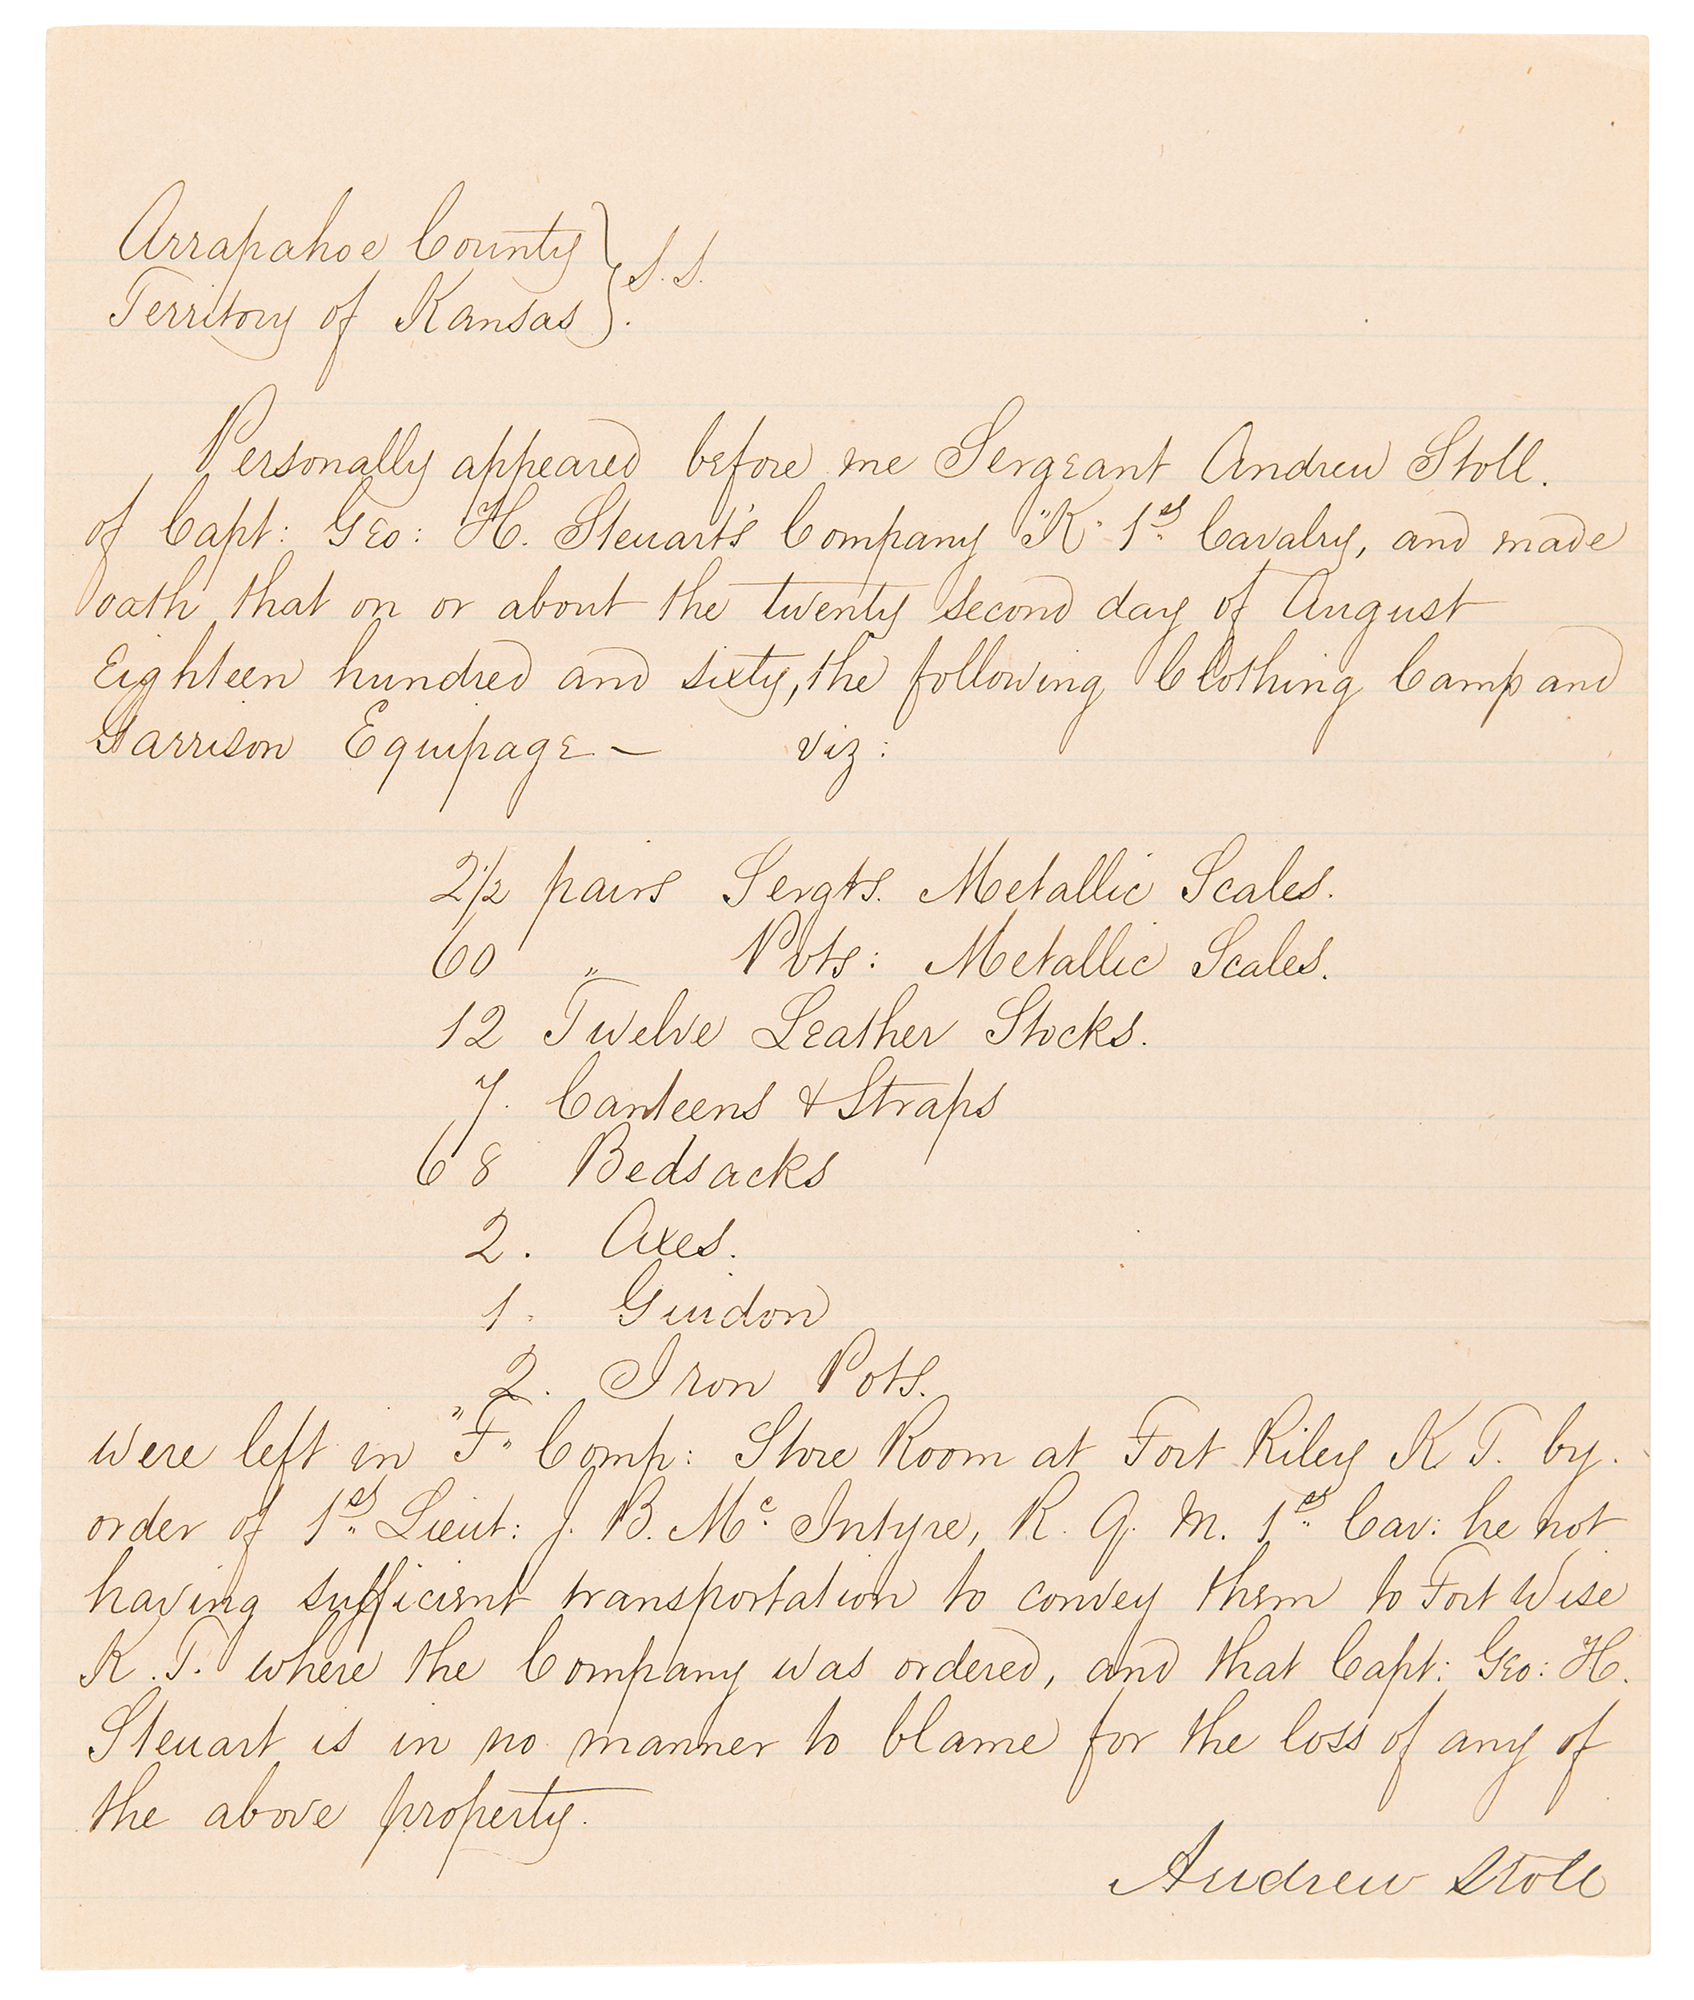 Arrapahoe County } S.S.
Territory of Kansas } .
Personally appeared before me Sergeant Andrew Stoll.
of Capt: Geo: H. Steuart's Company "K" 1st Cavalry, and made
oath that on or about the twenty second day of August
Eighteen hundred and sixty, the following Clothing Camp and
Garrison Equipage — viz:
2 1/2 pairs Sergts. Metallic Scales.
60 " Pvts: Metallic Scales.
12 Twelve Leather Stocks.
7. Canteens & Straps
68 Bedsacks
2. Axes.
1. Guidon
2. Iron Pots.
were left in "F" Comp: Store Room at Fort Riley K.T. by.
order of 1st Lieut: J. B. Mc Intyre, R. Q. M. 1st Cav: he not
having sufficient transportation to convey them to Fort Wise
K.T. where the Company was ordered, and that Capt: Geo: H.
Steuart is in no manner to blame for the loss of any of
the above property.
Andrew Stoll